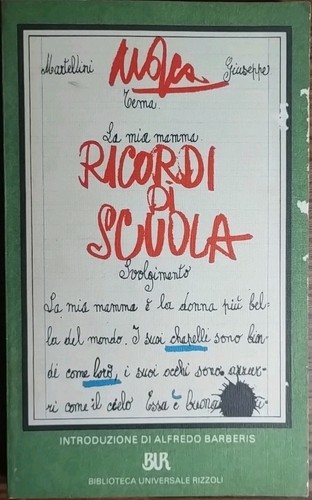 Martellini Mosca Giuseppe
Tema
La mia mamma
RICORDI
DI
SCUOLA
Svolgimento
La mia mamma è la donna più bel-
la del mondo. I suoi chapelli sono bion-
di come loro, i suoi occhi sono azzur-
ri come il cielo Essa è buona
INTRODUZIONE DI ALFREDO BARBERIS
BUR
BIBLIOTECA UNIVERSALE RIZZOLI